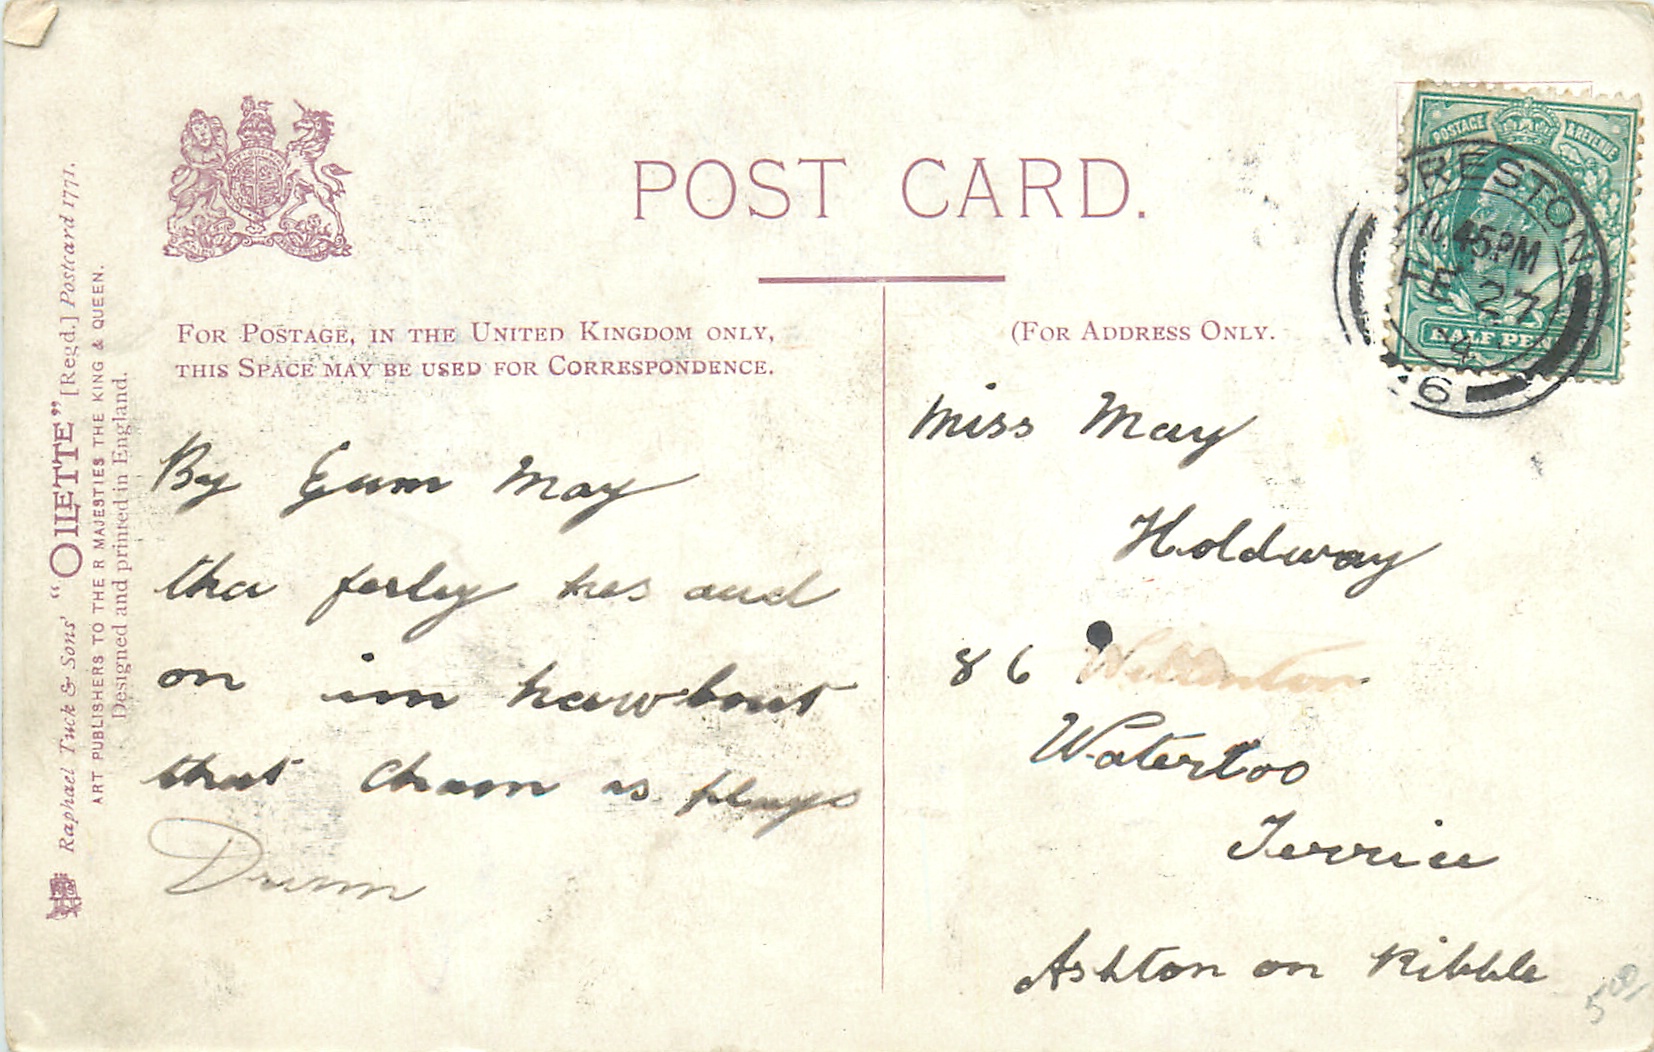 POST CARD.
FOR POSTAGE, IN THE UNITED KINGDOM ONLY,
THIS SPACE MAY BE USED FOR CORRESPONDENCE.
(FOR ADDRESS ONLY.
Raphael Tuck & Sons' "OILETTE" [Regd.] Postcard 1771.
ART PUBLISHERS TO THE R MAJESTIES THE KING & QUEEN.
Designed and printed in England.
POSTAGE & REVENUE
HALF PEN
PRESTON
11.45PM
FE 27
6
By Gum May
tha ferley hes and
on im hawbout
that cham is plays
Drum
Miss May
Holdway
86
Waterloo
Terrice
Ashton on Ribble